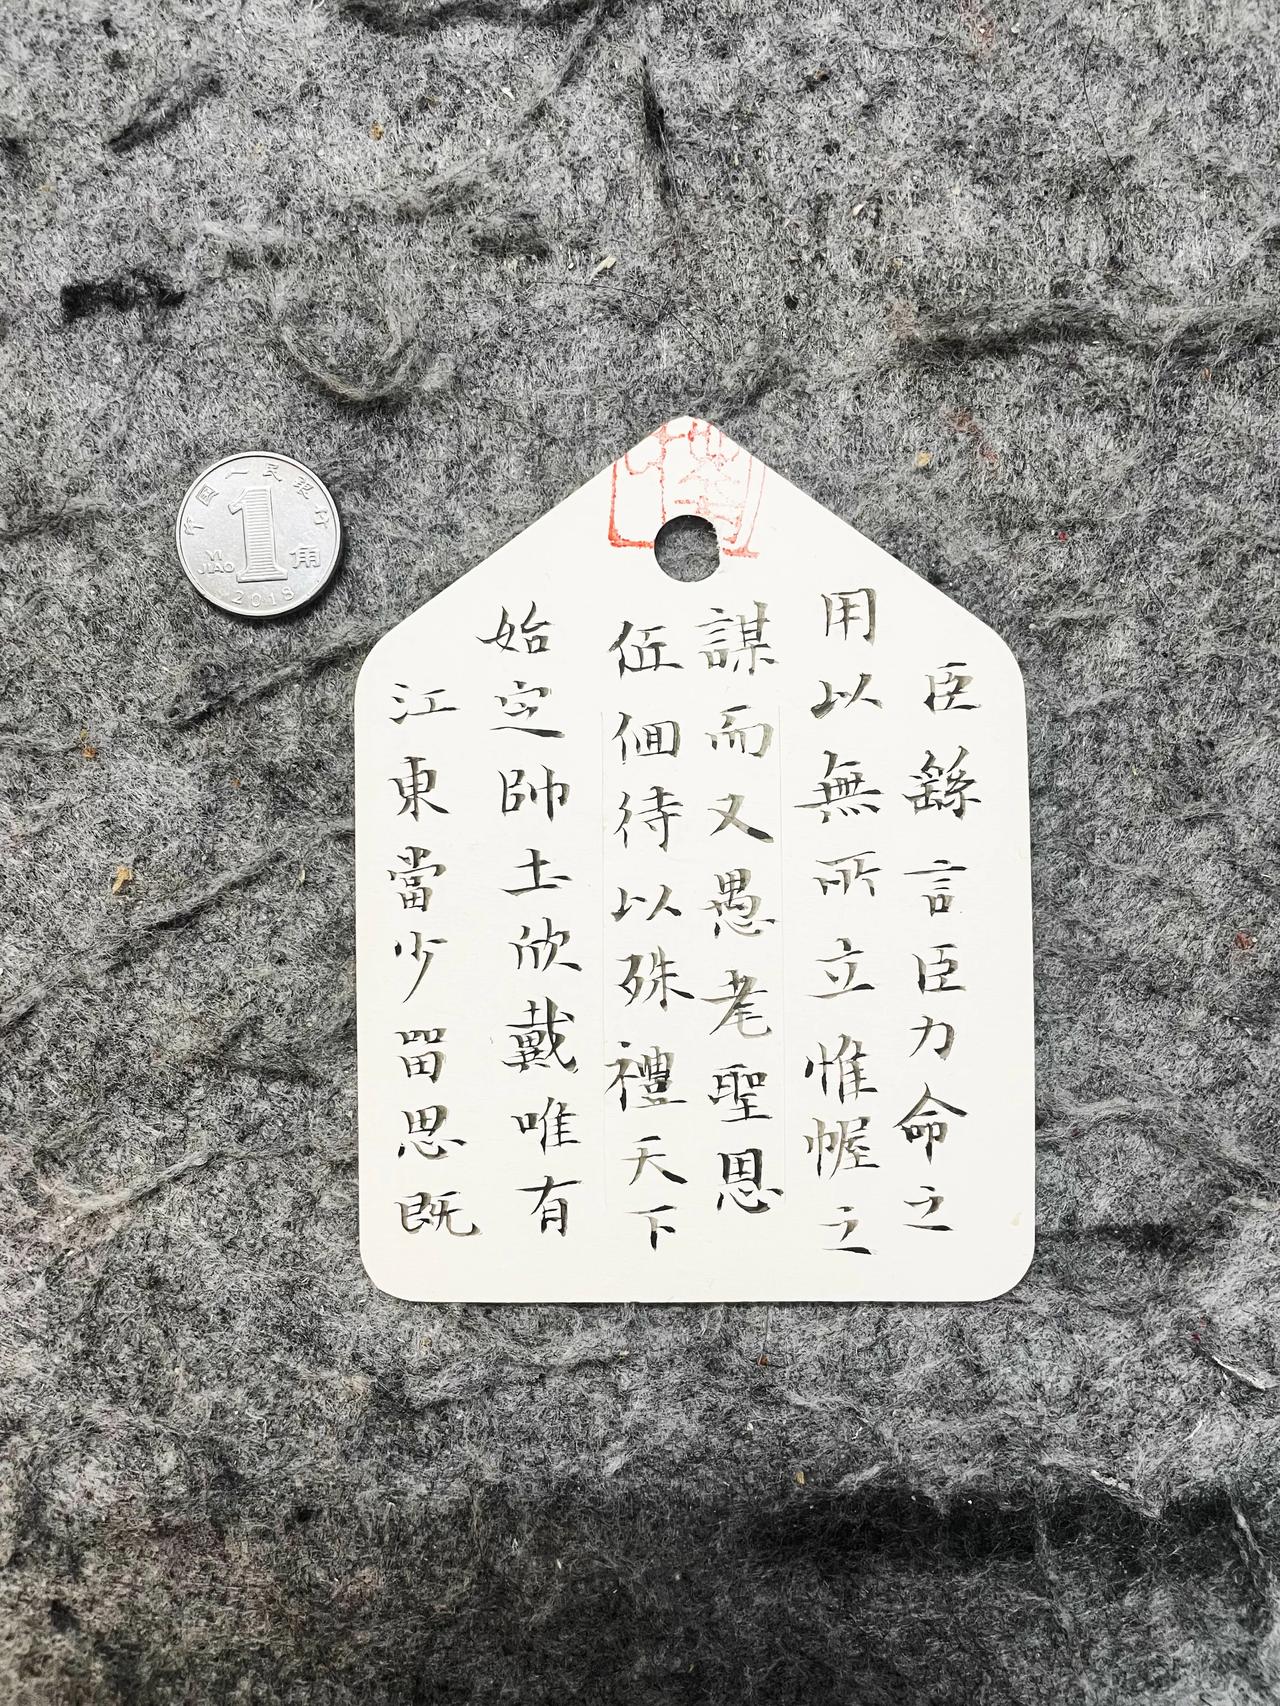 臣繇言臣力命之
用以無所立惟幄之
謀而又愚老聖恩
低佪待以殊禮天下
始定帥土欣戴唯有
江東當少留思既
中国人民银行
1
角
YI JIAO
2018